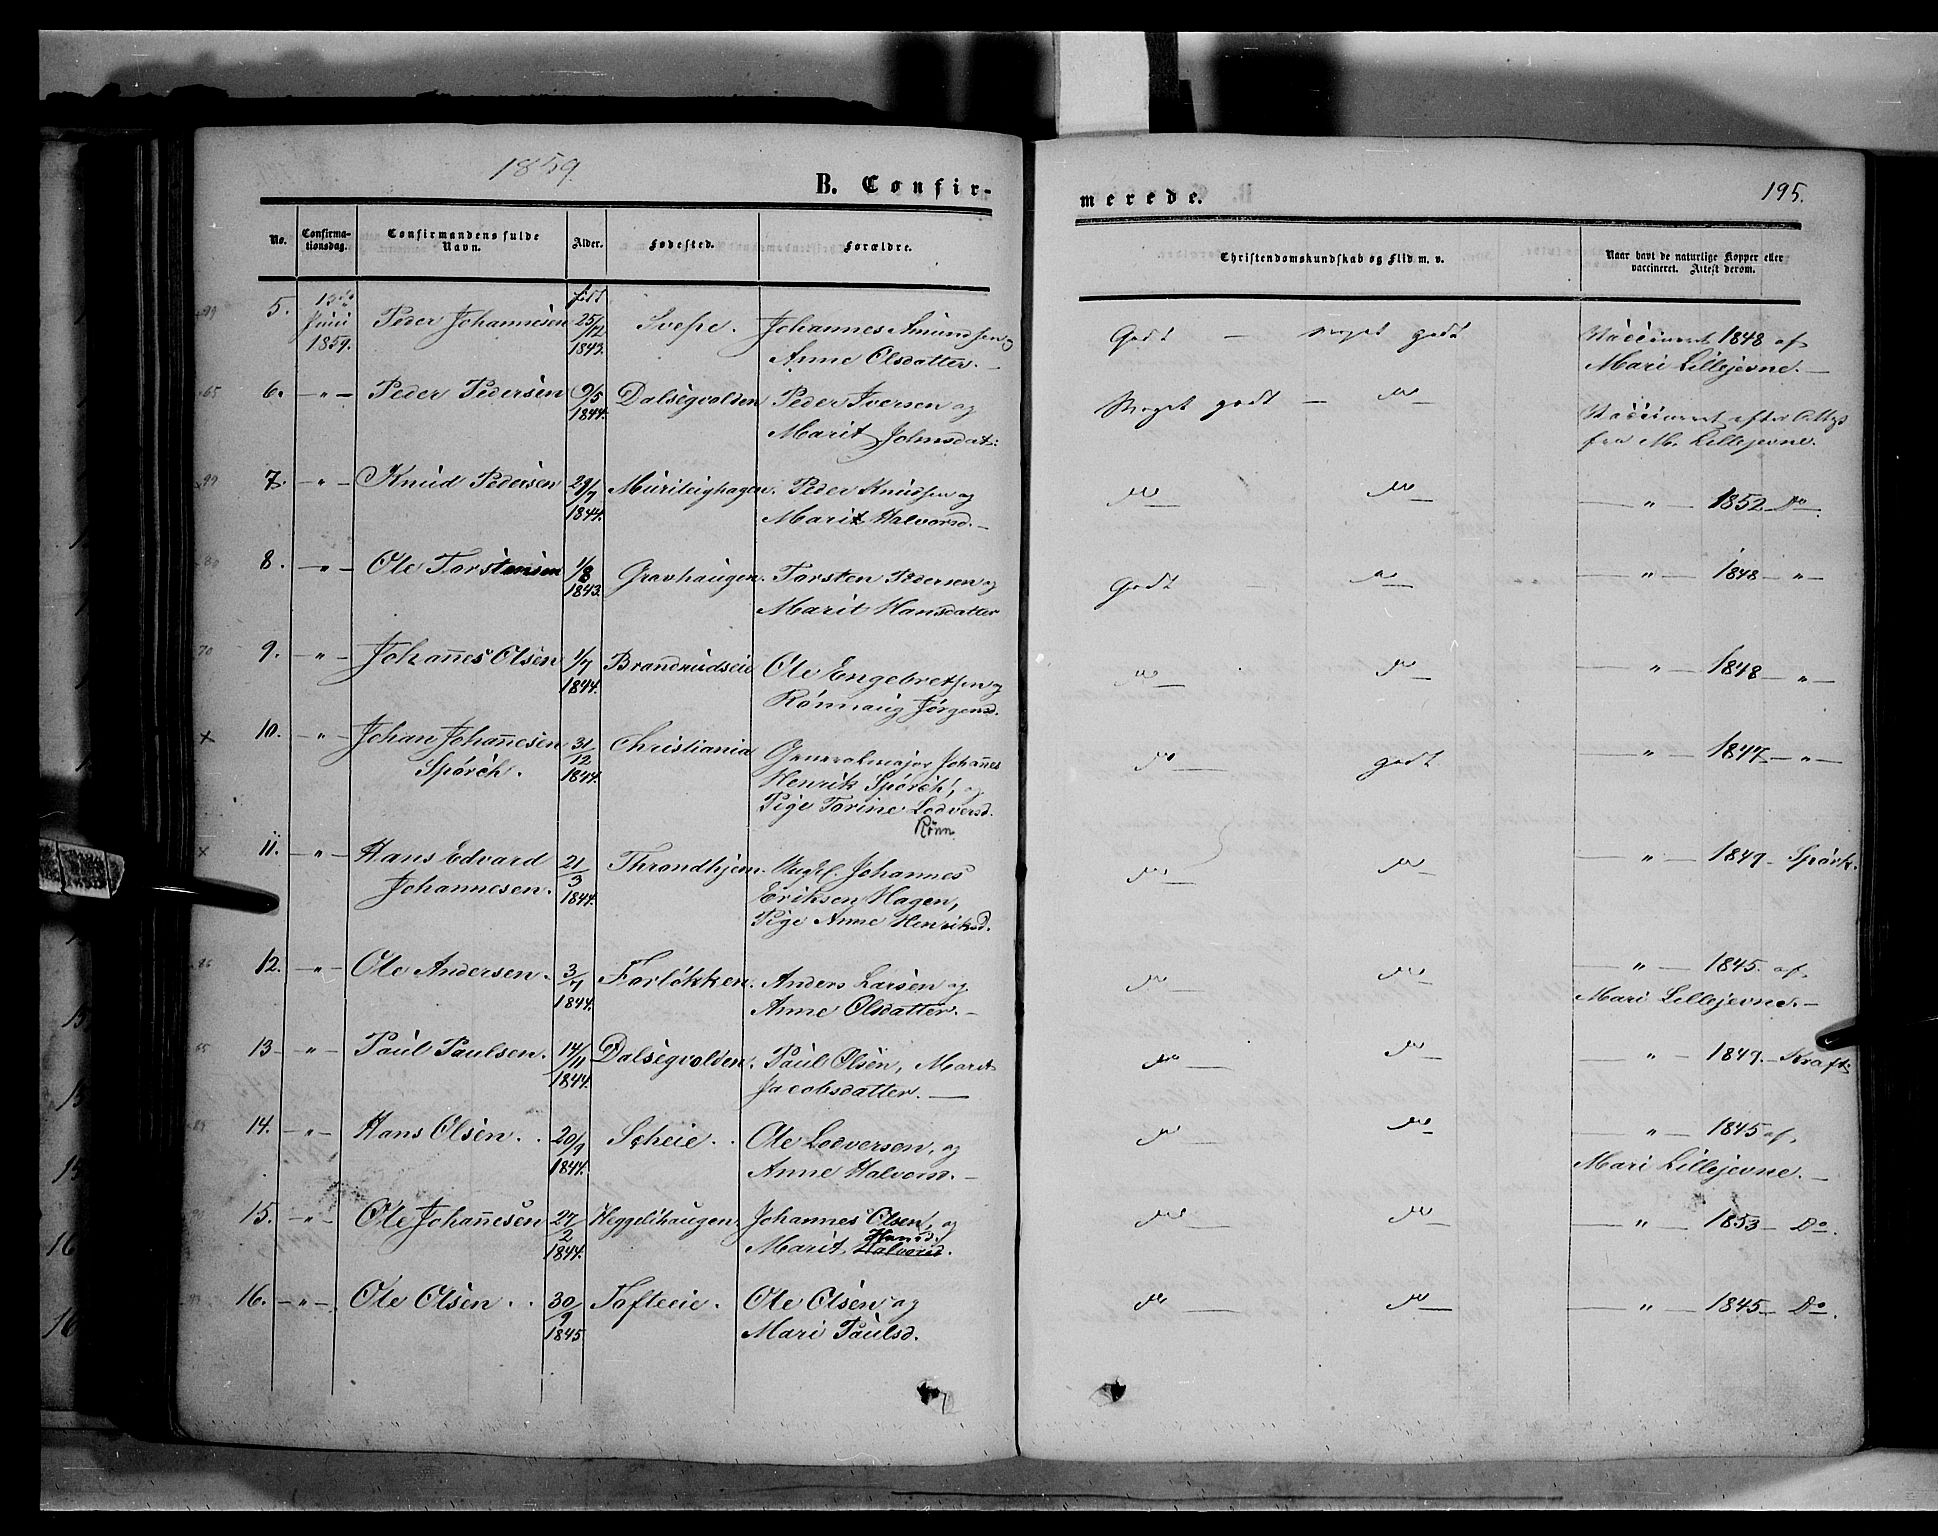 1859
B. Confir-
merede.
195.
No.
Confirma-
tionsdag.
Confirmandens fulde
Navn.
Alder.
Fødested.
Forældre.
Christendomskundskab og Flid m. v.
Naar havt de naturlige Kopper eller
vaccineret. Attest derom.
5. 13de Juni 1859. Peder Johannesen 25/12 1843. Svehe. Johannes Amundsen og
Anne Olsdatter.
Godt — meget godt
Vaccineret 1848 af
Mari Lillejevne. —
6. — " — Peder Pedersen 9/5 1844. Dalsegvolden Peder Iversen og
Marit Johnsdat:
Meget godt —
Vaccineret efter
fra M. Lillejevne.
7. — " — Knud Pedersen 29/7 1844. Peder Knudsen og
Marit Halvorsd. —
— " — 1852 Do
8. — " — Ole Torstensen 1/8 1843. Gravhaugen. Torsten Pedersen og
Marit Hansdatter
Godt
— " — 1848 — " —
9. — " — Johannes Olsen 1/7 1844. Brandrudseie Ole Engebretsen og
Rønnaug Jørgensd.
— " — 1848 — " —
10. — " — Johan Johannesen 31/12 1844. Christiania Generalmajor Johannes
Spørch. Henrik Spørch, og
Pige Torine Lodversd.
Rønn.
godt
— " — 1847 — " —
11. — " — Hans Edvard 21/3 1844. Throndhjem. Ungk. Johannes
Johannesen. Eriksen Hagen,
Pige Anne Henriksd.
— " — 1849 — Spørk.
12. — " — Ole Andersen. 3/7 1844. Forløkken. Anders Larsen og
Anne Olsdatter. —
— " — 1845. af
Mari Lillejevne. —
13 — " — Paul Paulsen. 14/11 1844. Dalsegvolden. Paul Olsen, Marit
Jacobsdatter. —
— " — 1849. — Kraft
14. — " — Hans Olsen. 20/9 1844. Scheie. Ole Lodversen, og
Anne Halvorsd. —
— " — 1845 af
Mari Lillejevne. —
15. — " — Ole Johannesen 27/2 1844. Heggelihaugen. Johannes Olsen, og
Hansd.
Marit Halvorsd.
— " — 1853 — Do.
16. — " — Ole Olsen. 30/9 1845. Tofteeie. Ole Olsen og
Mari Paulsd.
— " — 1845 — Do.